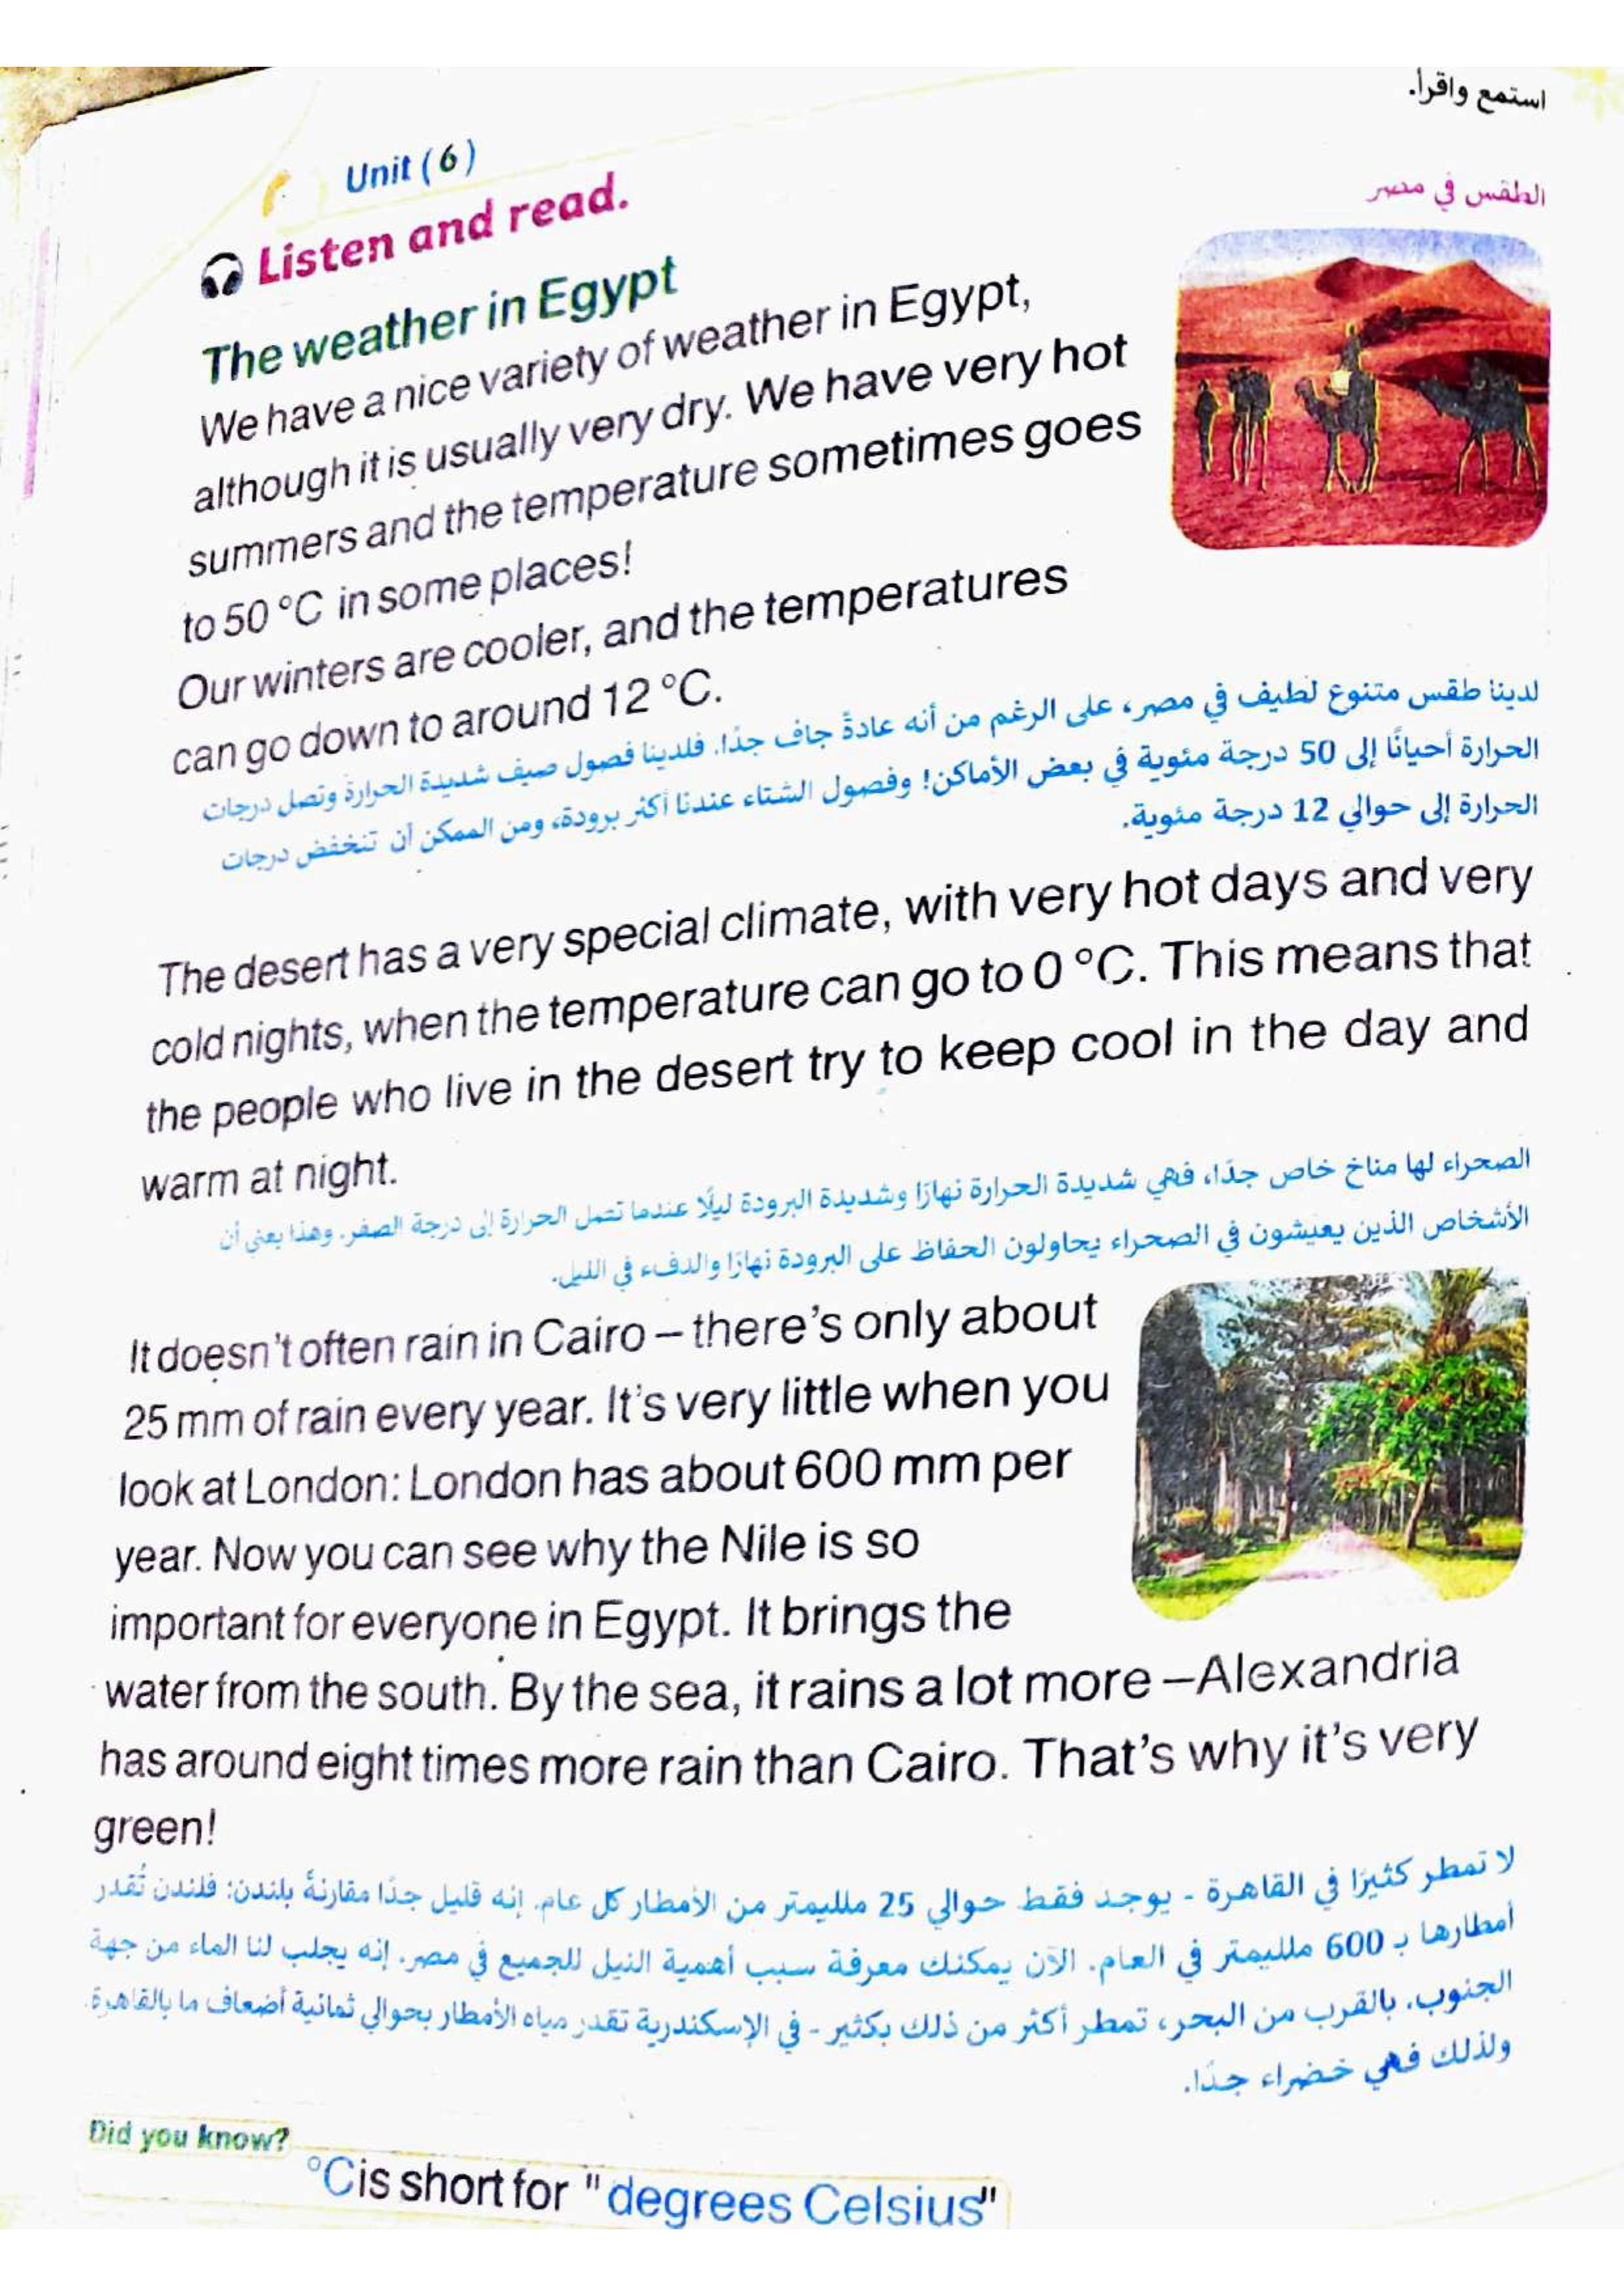 استمع واقرأ.
Unit (6)
Listen and read.
الطقس في مصر
The weather in Egypt
We have a nice variety of weather in Egypt,
although it is usually very dry. We have very hot
summers and the temperature sometimes goes
to 50 °C in some places!
Our winters are cooler, and the temperatures
can go down to around 12 °C.
لدينا طقس متنوع لطيف في مصر، على الرغم من أنه عادةً جاف جدًا. فلدينا فصول صيف شديدة الحرارة وتصل درجات
الحرارة أحيانًا إلى 50 درجة مئوية في بعض الأماكن! وفصول الشتاء عندنا أكثر برودة، ومن الممكن أن تنخفض درجات
الحرارة إلى حوالي 12 درجة مئوية.
The desert has a very special climate, with very hot days and very
cold nights, when the temperature can go to 0 °C. This means that
the people who live in the desert try to keep cool in the day and
warm at night.
الصحراء لها مناخ خاص جدًا، فهي شديدة الحرارة نهارًا وشديدة البرودة ليلًا عندما تصل الحرارة إلى درجة الصفر. وهذا يعني أن
الأشخاص الذين يعيشون في الصحراء يحاولون الحفاظ على البرودة نهارًا والدفء في الليل.
It doesn't often rain in Cairo – there's only about
25 mm of rain every year. It's very little when you
look at London: London has about 600 mm per
year. Now you can see why the Nile is so
important for everyone in Egypt. It brings the
water from the south. By the sea, it rains a lot more –Alexandria
has around eight times more rain than Cairo. That's why it's very
green!
لا تمطر كثيرًا في القاهرة - يوجد فقط حوالي 25 ملليمتر من الأمطار كل عام. إنه قليل جدًا مقارنةً بلندن: فلندن تُقدر
أمطارها بـ 600 ملليمتر في العام. الآن يمكنك معرفة سبب أهمية النيل للجميع في مصر. إنه يجلب لنا الماء من جهة
الجنوب. بالقرب من البحر، تمطر أكثر من ذلك بكثير - في الإسكندرية تقدر مياه الأمطار بحوالي ثمانية أضعاف ما بالقاهرة.
ولذلك فهي خضراء جدًا.
Did you know?
°C is short for "degrees Celsius"